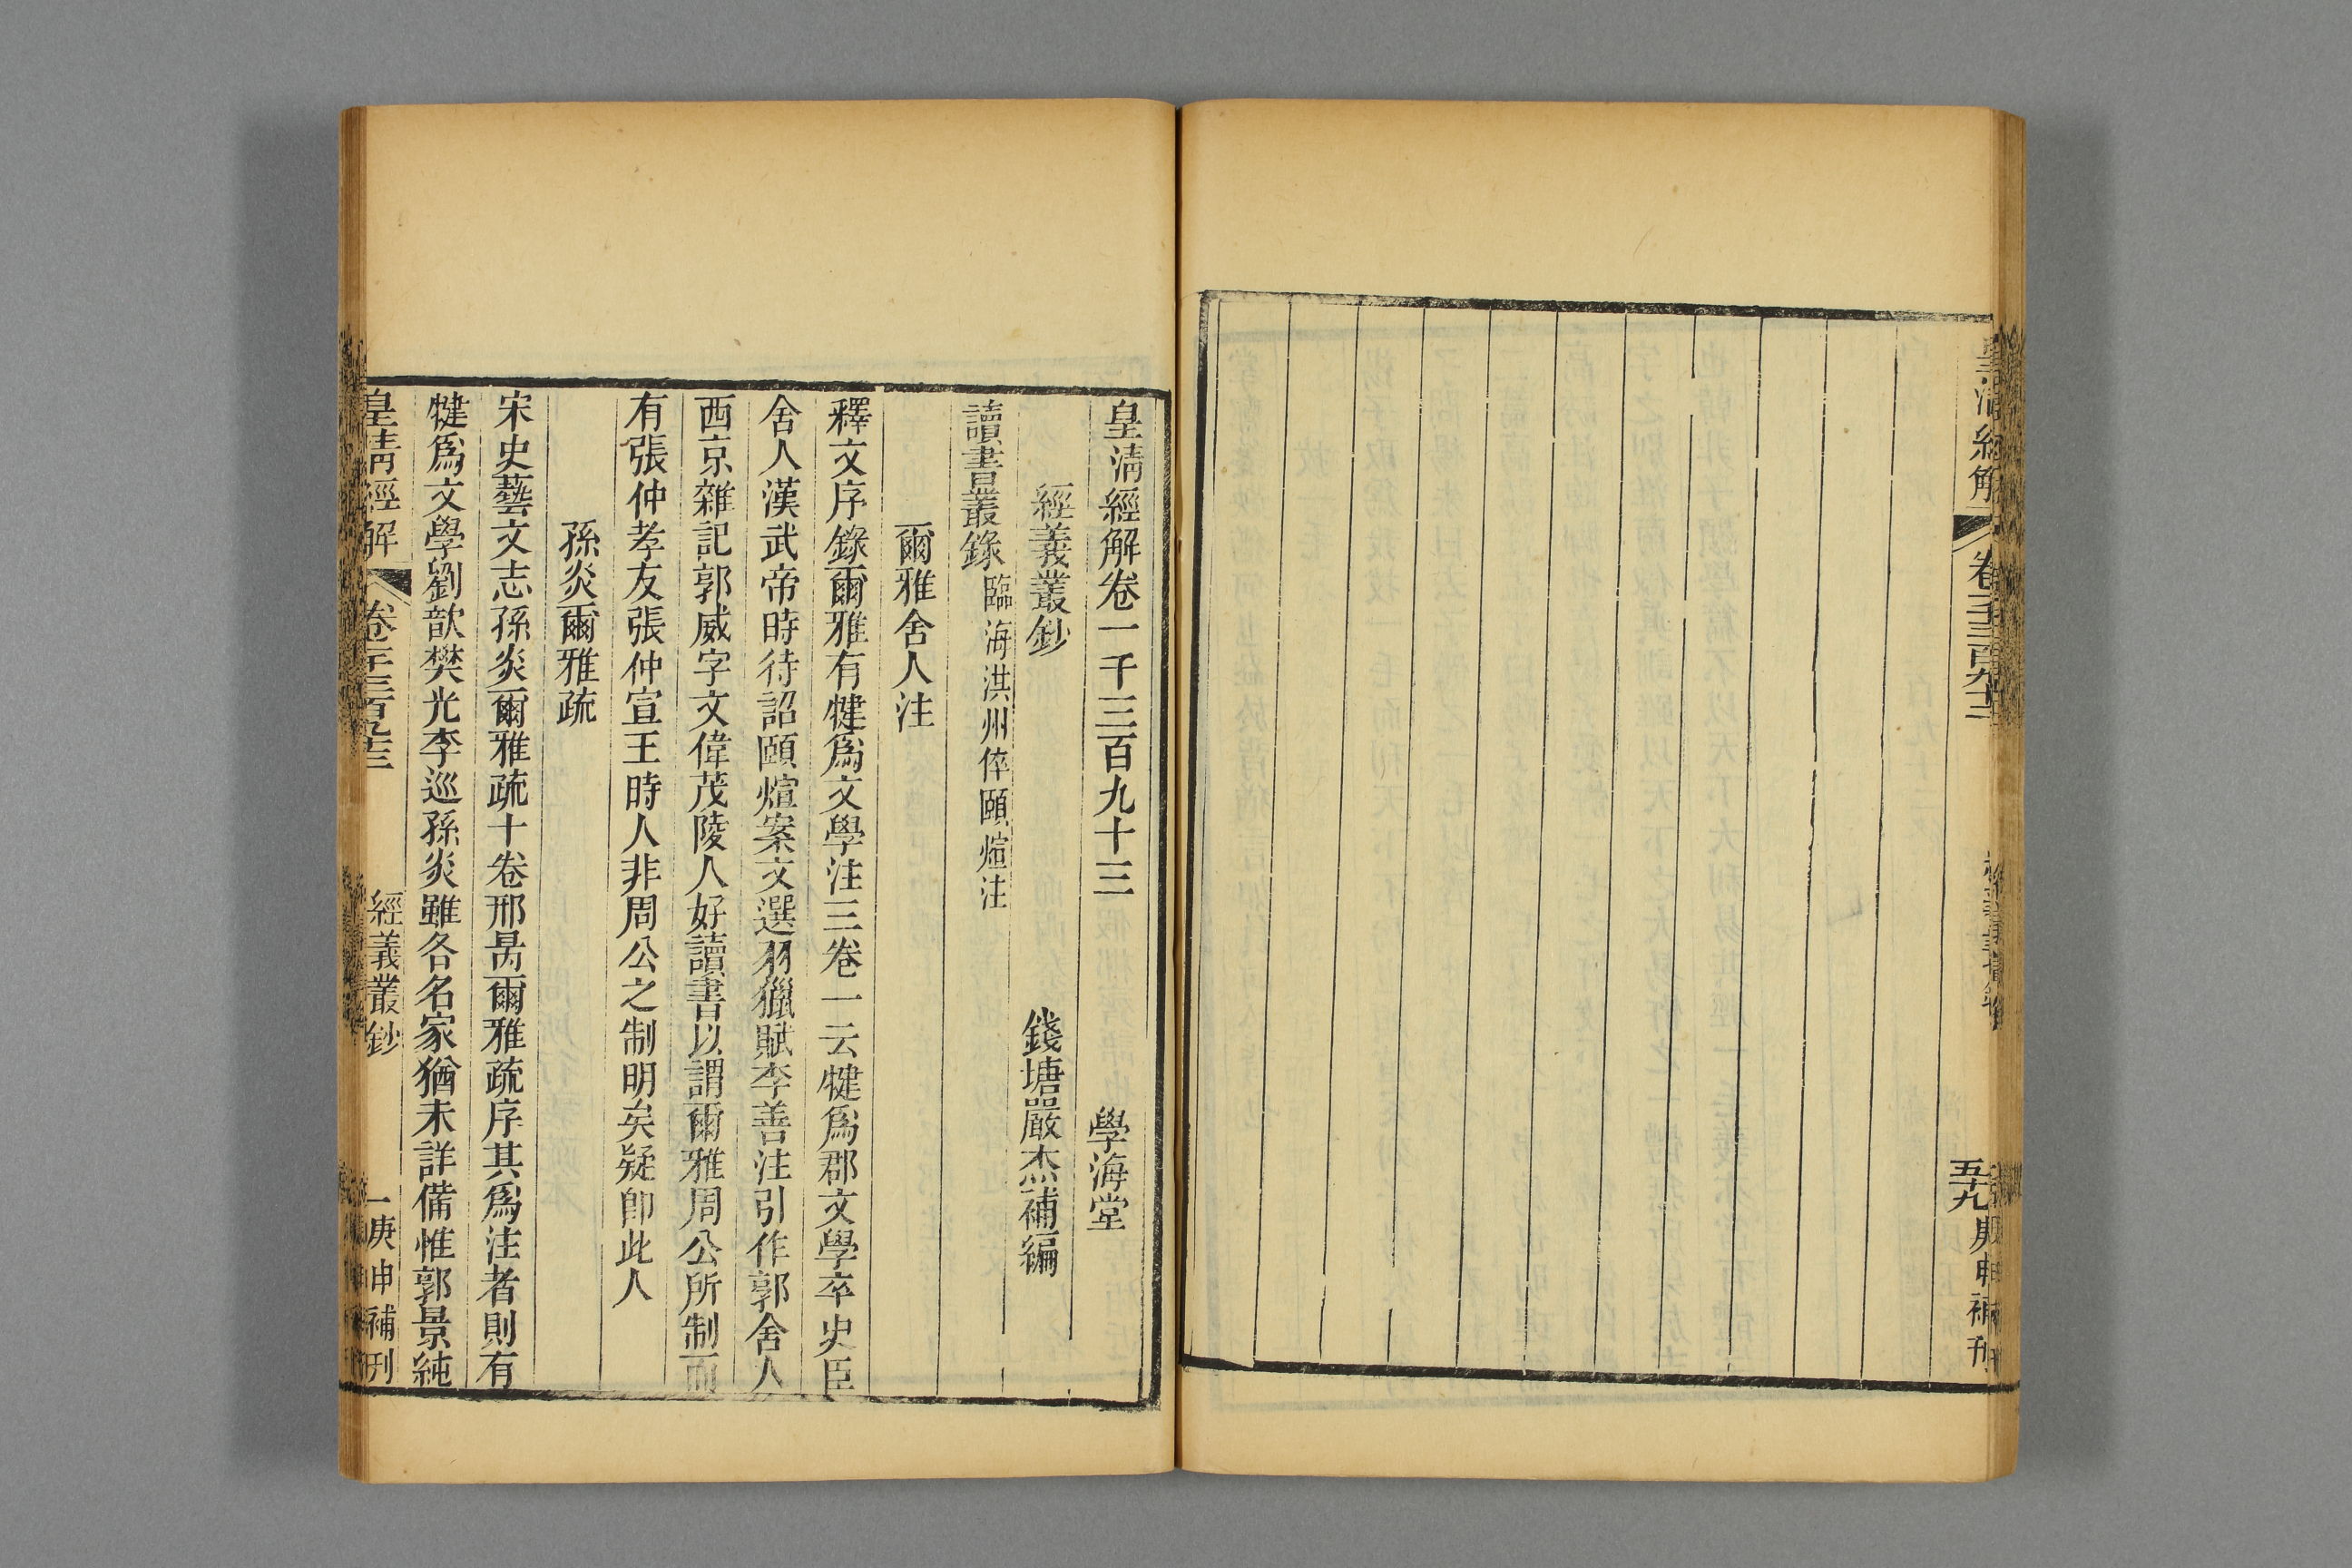 皇清經解
五十九
庚申補刊
皇清經解卷一千三百九十三
學海堂
經義叢鈔
錢塘嚴杰補編
讀書叢錄
臨海洪州倅頤煊注
爾雅舍人注
釋文序錄爾雅有犍爲文學注三卷一云犍爲郡文學卒史臣
舍人漢武帝時待詔頤煊案文選羽獵賦李善注引作郭舍人
西京雜記郭威字文偉茂陵人好讀書以謂爾雅周公所制而
有張仲孝友張仲宣王時人非周公之制明矣疑卽此人
孫炎爾雅疏
宋史藝文志孫炎爾雅疏十卷邢昺爾雅疏序其爲注者則有
犍爲文學劉歆樊光李巡孫炎雖各名家猶未詳備惟郭景純
皇清經解
卷一千三百九十三
經義叢鈔
一
庚申補刊